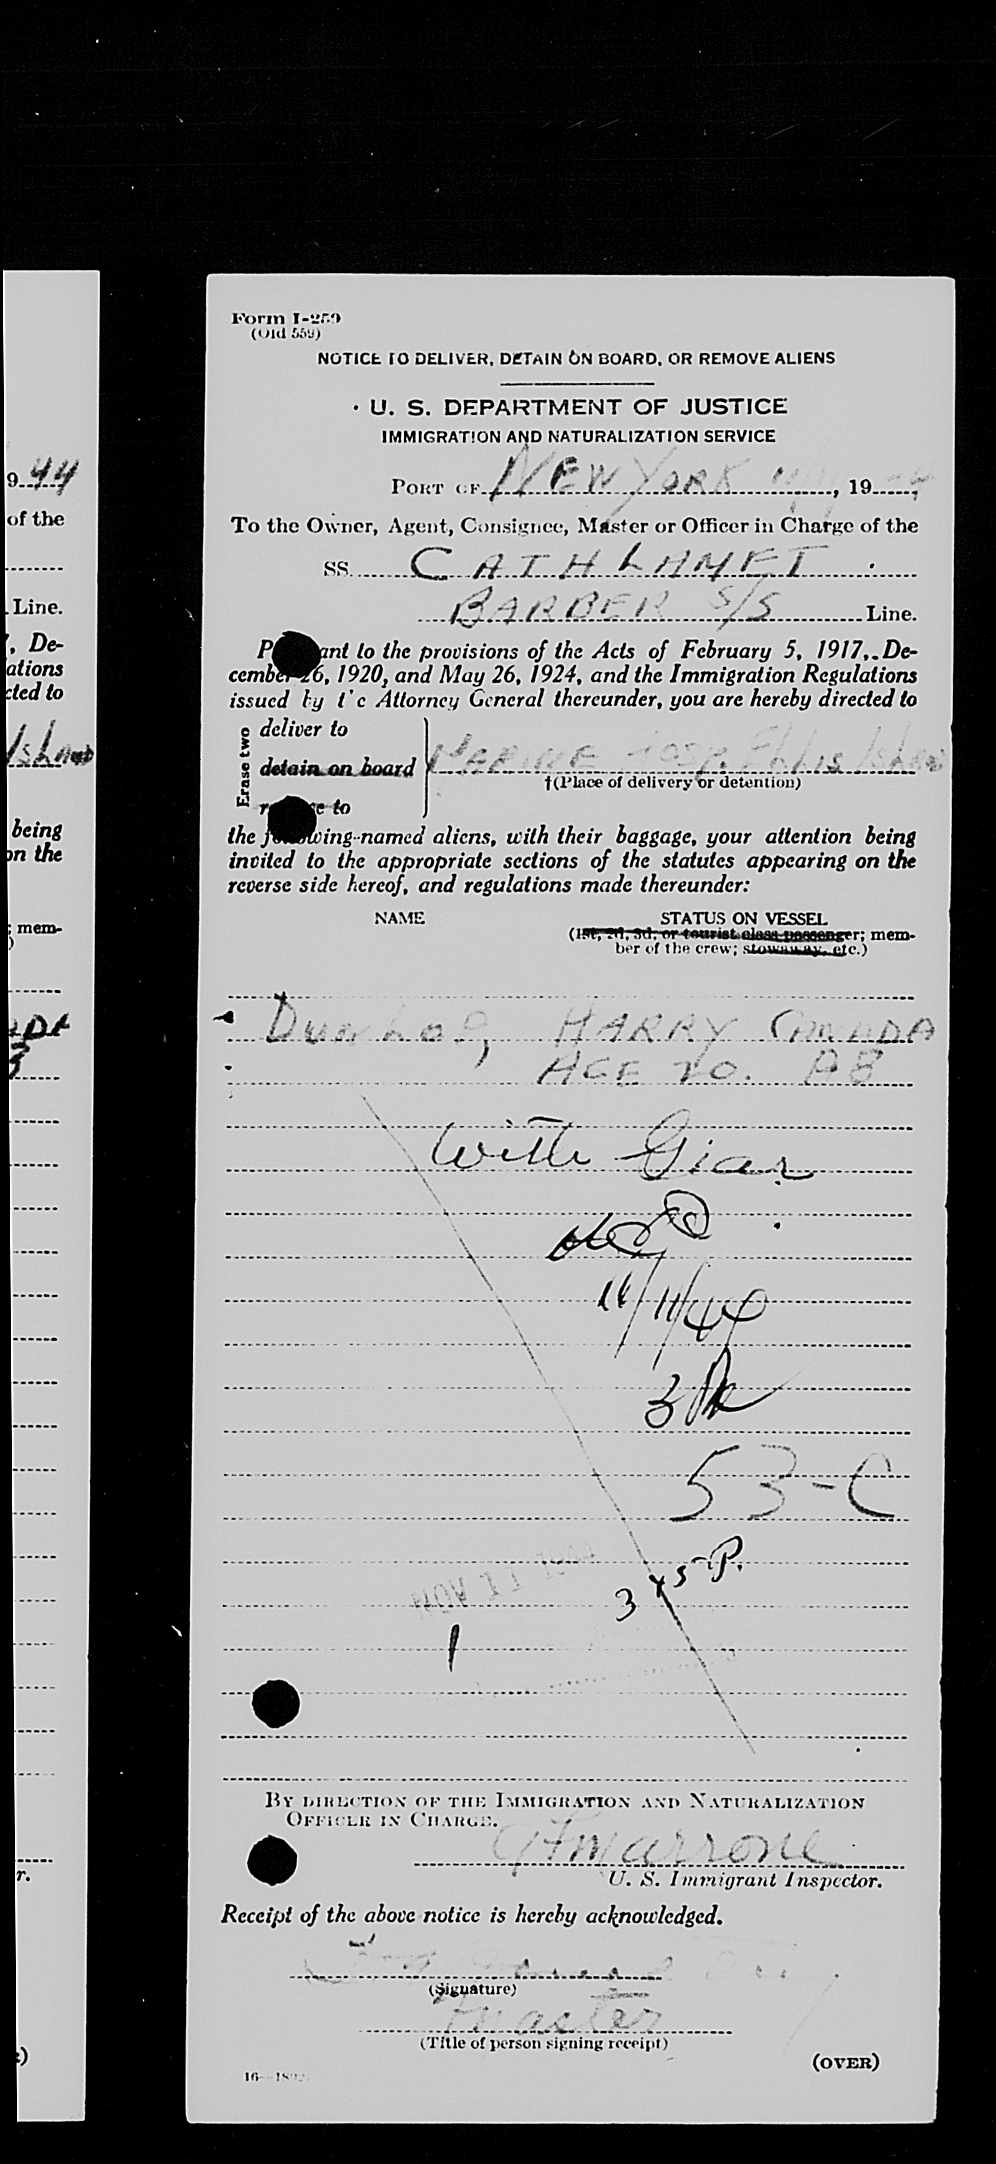 Form I-259
(Old 559)
NOTICE TO DELIVER, DETAIN ON BOARD, OR REMOVE ALIENS
U. S. DEPARTMENT OF JUSTICE
IMMIGRATION AND NATURALIZATION SERVICE
PORT OF NEW YORK , 19
To the Owner, Agent, Consignee, Master or Officer in Charge of the
SS. CATHLAMET
BARBER S/S Line.
P ant to the provisions of the Acts of February 5, 1917, De-
cember 26, 1920, and May 26, 1924, and the Immigration Regulations
issued by t e Attorney General thereunder, you are hereby directed to
Erase two
deliver to
detain on board
MARINE HOSP. Ellis Island
†(Place of delivery or detention)
r e to
the following-named aliens, with their baggage, your attention being
invited to the appropriate sections of the statutes appearing on the
reverse side hereof, and regulations made thereunder:
NAME STATUS ON VESSEL
(1st, 2d, 3d, or tourist class passenger; mem-
ber of the crew; stowaway, etc.)
DUNLOP, HARRY CANADA
AGE 20. AB
With Gear
11/11/44
3 PM
53-C
3 45 P.
NOV 11
1
BY DIRECTION OF THE IMMIGRATION AND NATURALIZATION
OFFICER IN CHARGE.
Marrone
U. S. Immigrant Inspector.
Receipt of the above notice is hereby acknowledged.
(Signature)
Master
(Title of person signing receipt)
(OVER)
9 44
of the
Line.
, De-
ations
cted to
Island
being
on the
; mem-
)
3
r.
)